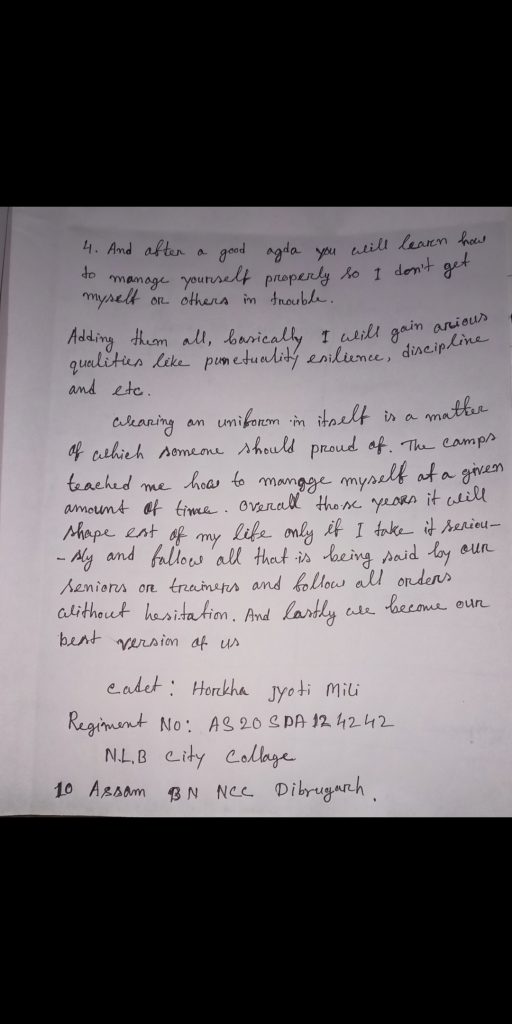 4. And after a good agda you will learn how
to manage yourself properly so I don't get
myself or others in trouble.
Adding them all, basically I will gain arious
qualities like punctuality esilience, discipline
and etc.
Wearing an uniform in itself is a matter
of which someone should proud of. The camps
teached me how to manage myself at a given
amount of time. Overall those years it will
shape est of my life only if I take it seriou-
-sly and follow all that is being said by our
seniors or trainers and follow all orders
without hesitation. And lastly we become our
best version of us
Cadet: Horkha Jyoti Mili
Regiment No: AS20SDA124242
N.L.B City Collage
10 Assam BN NCC Dibrugarh.